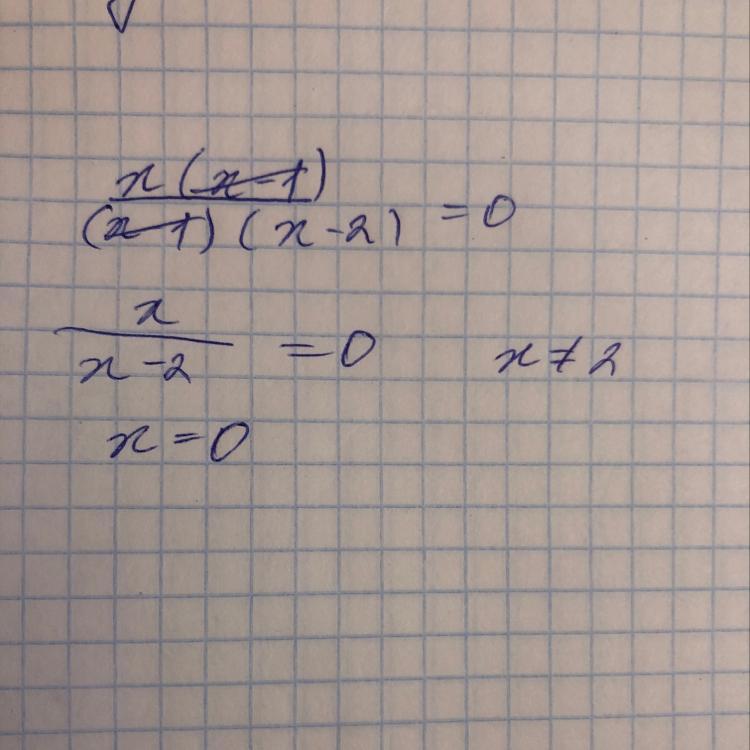 x(x-1)
(x-1)(x-2) = 0
x
x-2 = 0 x≠2
x=0